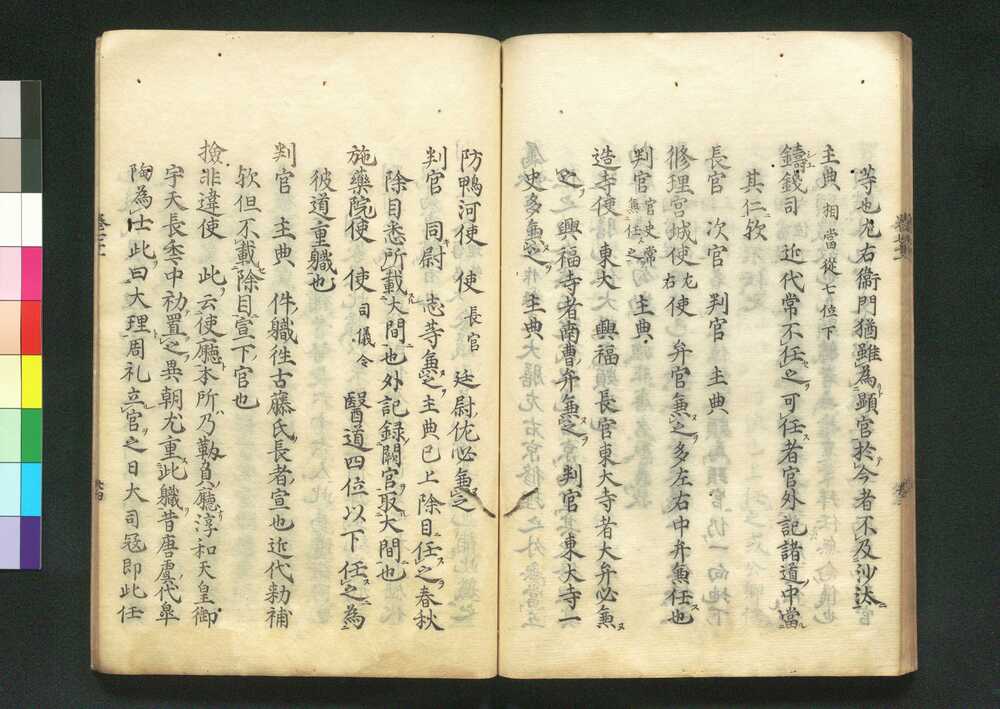 等也左右衛門猶雖為顕官於今者不及沙汰
主典 相當從七位下
鑄錢司 近代常不任之可任者官外記諸道中當
其仁欤
長官 次官 判官 主典
修理宮城使 左右 使 弁官兼之多左右中弁兼任也
判官 官史常兼任之 主典
造寺使 東大 興福 長官東大寺者大弁必兼
之 興福寺者南曹弁兼之 判官 東大寺一
史多兼之 主典
防鴨河使 長官 廷尉佐必兼之
判官 同尉 志等兼之主典已上除目任之春秋
除目悉所載大間也外記録闕官取大間也
施藥院使 使 司儀令 醫道四位以下任之為
彼道重職也
判官 主典 件職徃古藤氏長者宣也近代勅補
欤但不載除目宣下官也
撿非違使 此云使廳本所乃靫負廳淳和天皇御
宇天長季中初置之異朝尤重此職昔唐虞代皐
陶為士此曰大理周礼立官之日大司冦即此任